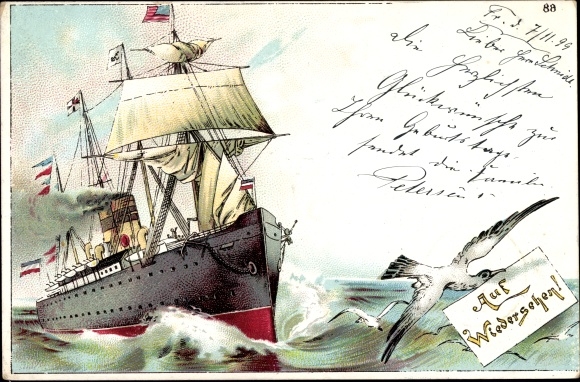 88
Fr. d. 7/11. 99
Lieber Herr Schmidt.
die herzlichsten
Glückwünsche zu
Ihrem Geburtstage
sendet die Familie
Petersen
Auf
Wiedersehen!